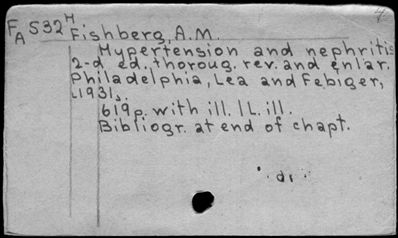 4
FA S32H Fishberg, A.M.
Hypertension and nephritis
2-d ed. thoroug. rev. and enlar.
Philadelphia, Lea and Febiger,
[1931].
619p. with ill. 1 L. ill.
Bibliogr. at end of chapt.
di